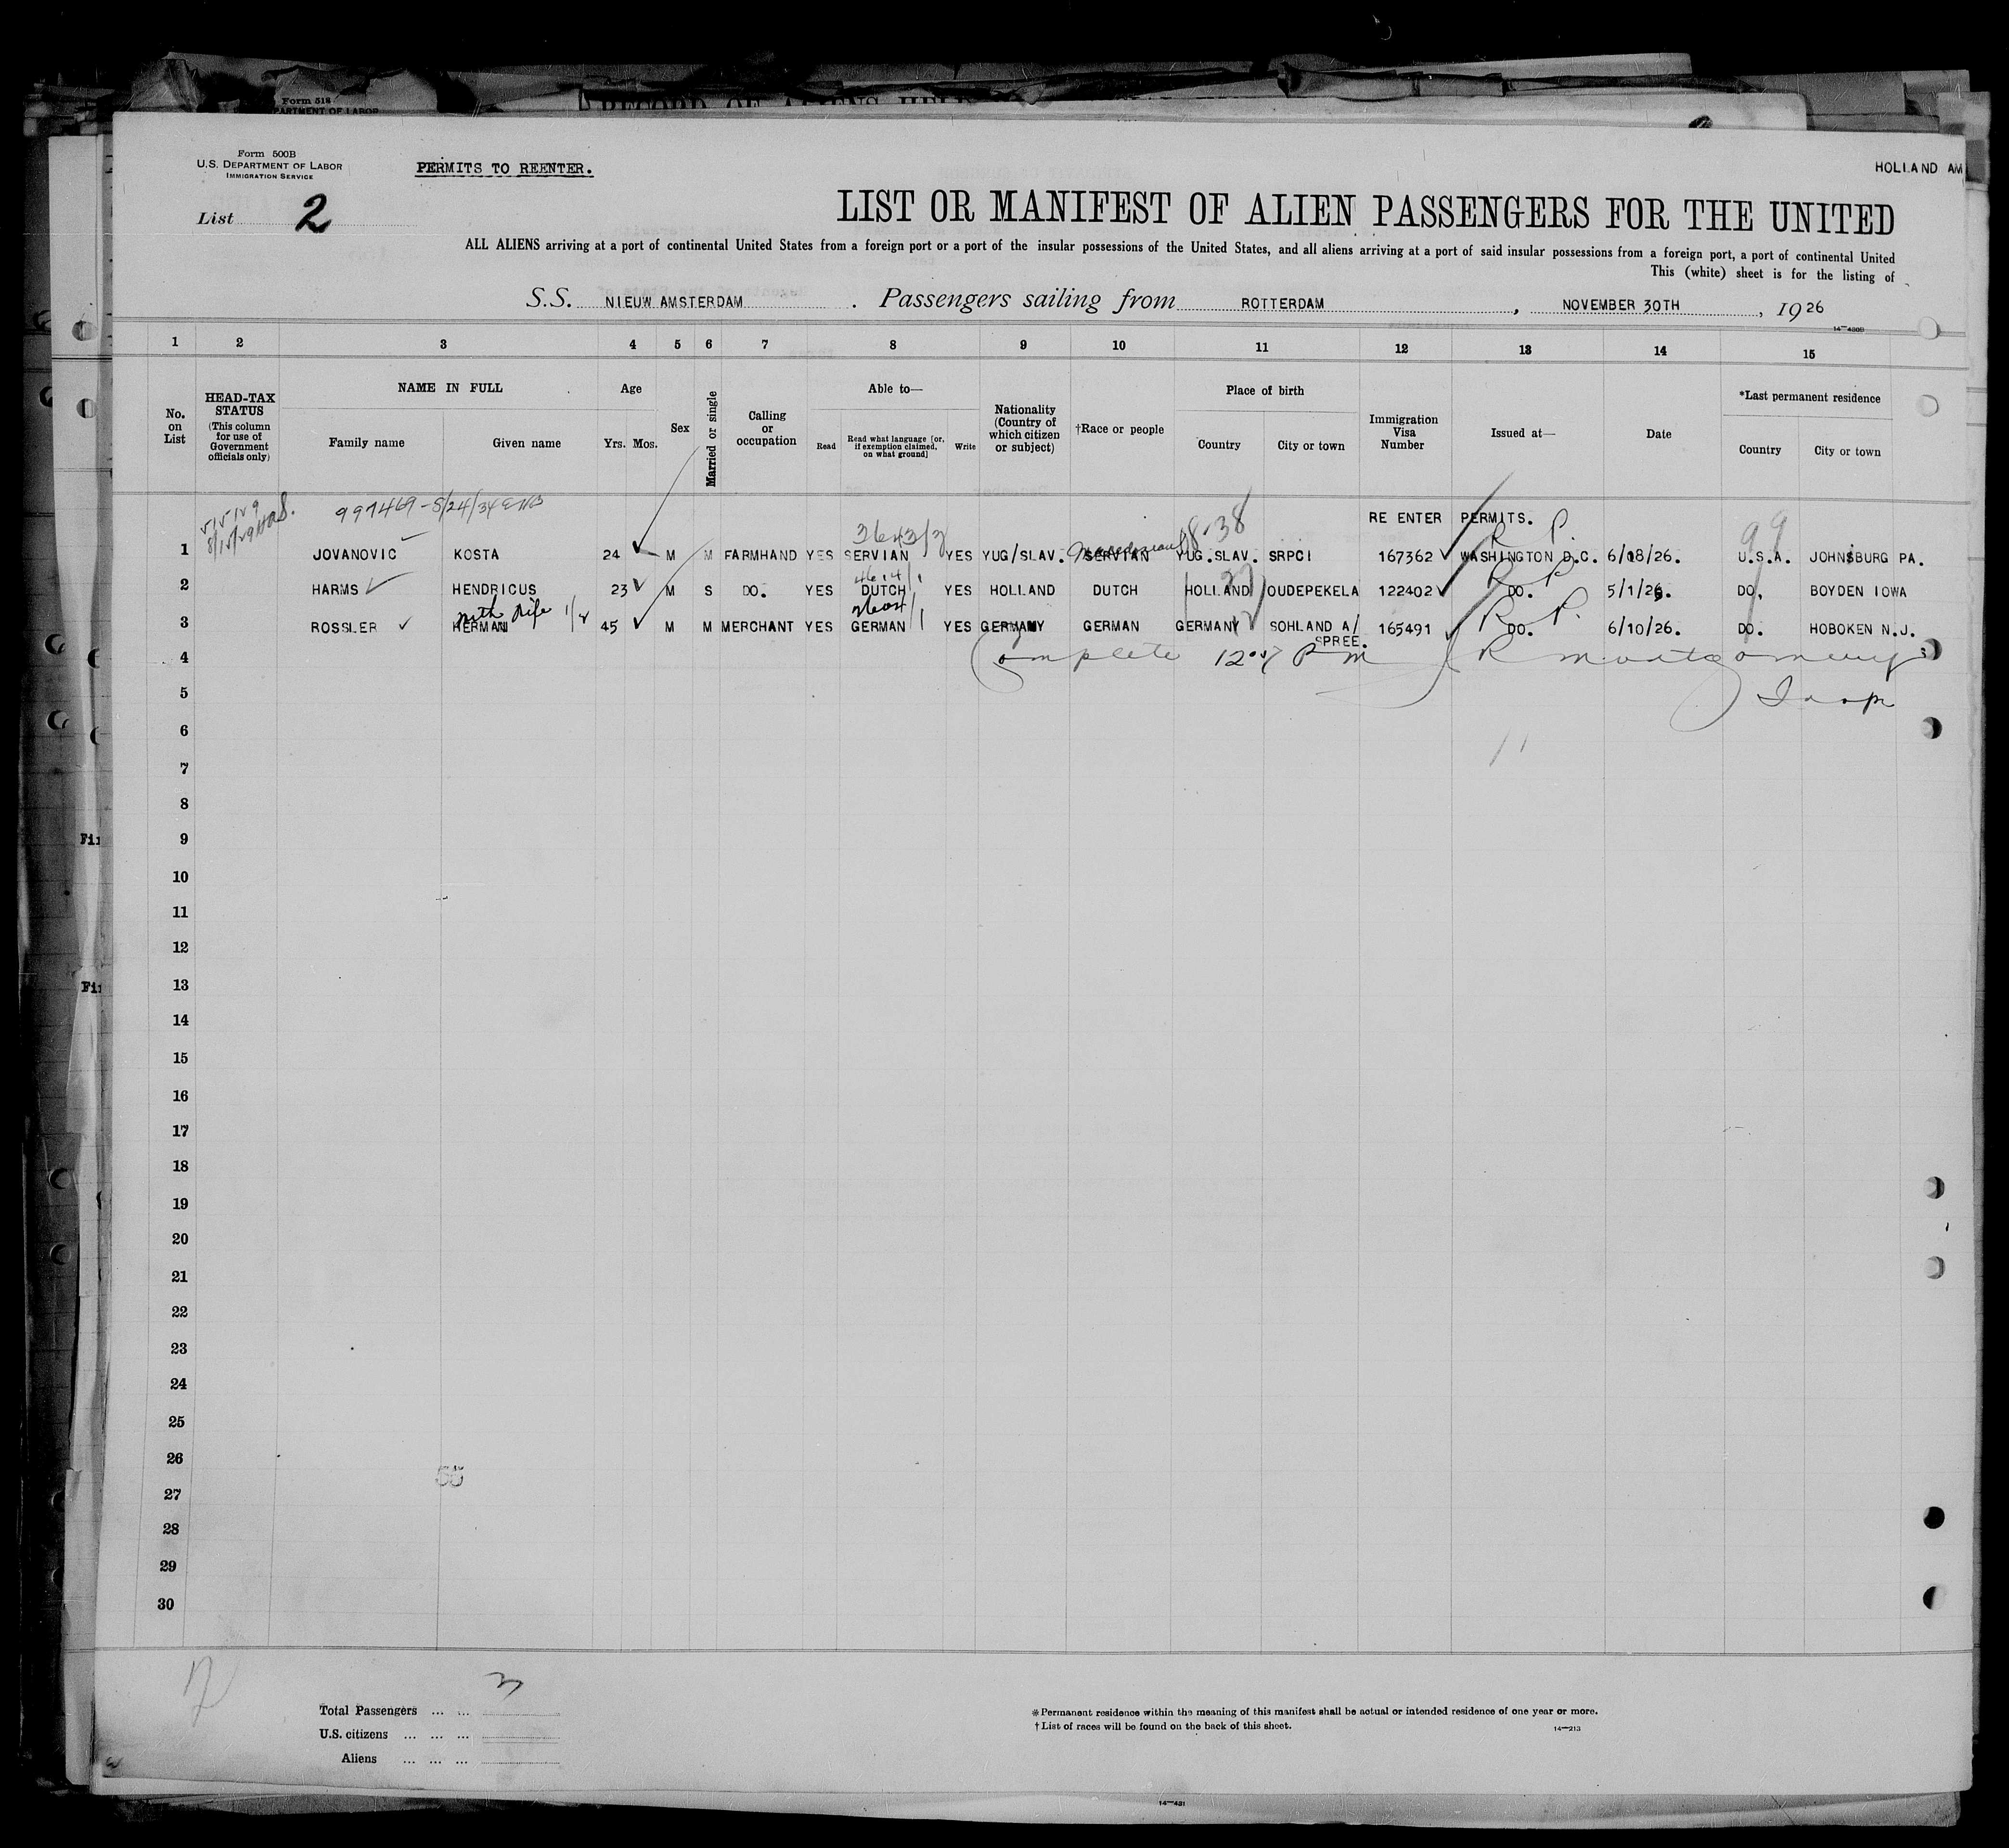 Form 518
DEPARTMENT OF LABOR
RECORD OF ALIENS HELD
Form 500B
U.S. DEPARTMENT OF LABOR
IMMIGRATION SERVICE
PERMITS TO REENTER.
HOLLAND AM
List 2
LIST OR MANIFEST OF ALIEN PASSENGERS FOR THE UNITED
ALL ALIENS arriving at a port of continental United States from a foreign port or a port of the insular possessions of the United States, and all aliens arriving at a port of said insular possessions from a foreign port, a port of continental United
This (white) sheet is for the listing of
S.S. NIEUW AMSTERDAM. Passengers sailing from ROTTERDAM, NOVEMBER 30TH, 1926
14—480B
1 2 3 4 5 6 7 8 9 10 11 12 13 14 15
No. on List
HEAD-TAX STATUS (This column for use of Government officials only)
NAME IN FULL
Family name Given name
Age
Yrs. Mos.
Sex
Married or single
Calling or occupation
Able to—
Read Read what language [or, if exemption claimed, on what ground] Write
Nationality (Country of which citizen or subject)
†Race or people
Place of birth
Country City or town
Immigration Visa Number
Issued at—
Date
*Last permanent residence
Country City or town
997469-8/24/34
RE ENTER PERMITS.
99
1 JOVANOVIC KOSTA 24 M M FARMHAND YES SERVIAN YES YUG/SLAV. SERVIAN YUG.SLAV. SRPCI 167362 WASHINGTON D.C. 6/18/26. U.S.A. JOHNSBURG PA.
R P.
2 HARMS HENDRICUS 23 M S DO. YES DUTCH YES HOLLAND DUTCH HOLLAND OUDEPEKELA 122402 DO. 5/1/26. DO. BOYDEN IOWA
R P.
with Wife
3 ROSSLER HERMAN 45 M M MERCHANT YES GERMAN YES GERMANY GERMAN GERMANY SOHLAND A/ SPREE. 165491 DO. 6/10/26. DO. HOBOKEN N.J.
R P.
4 Complete 12 07 Pm J R Montgomery
5 Insp
6
7
8
9
10
11
12
13
14
15
16
17
18
19
20
21
22
23
24
25
26
27
28
29
30
Total Passengers ... ... 3
U.S. citizens ... ... ...
Aliens ... ... ...
*Permanent residence within the meaning of this manifest shall be actual or intended residence of one year or more.
†List of races will be found on the back of this sheet.
14—213
14—431